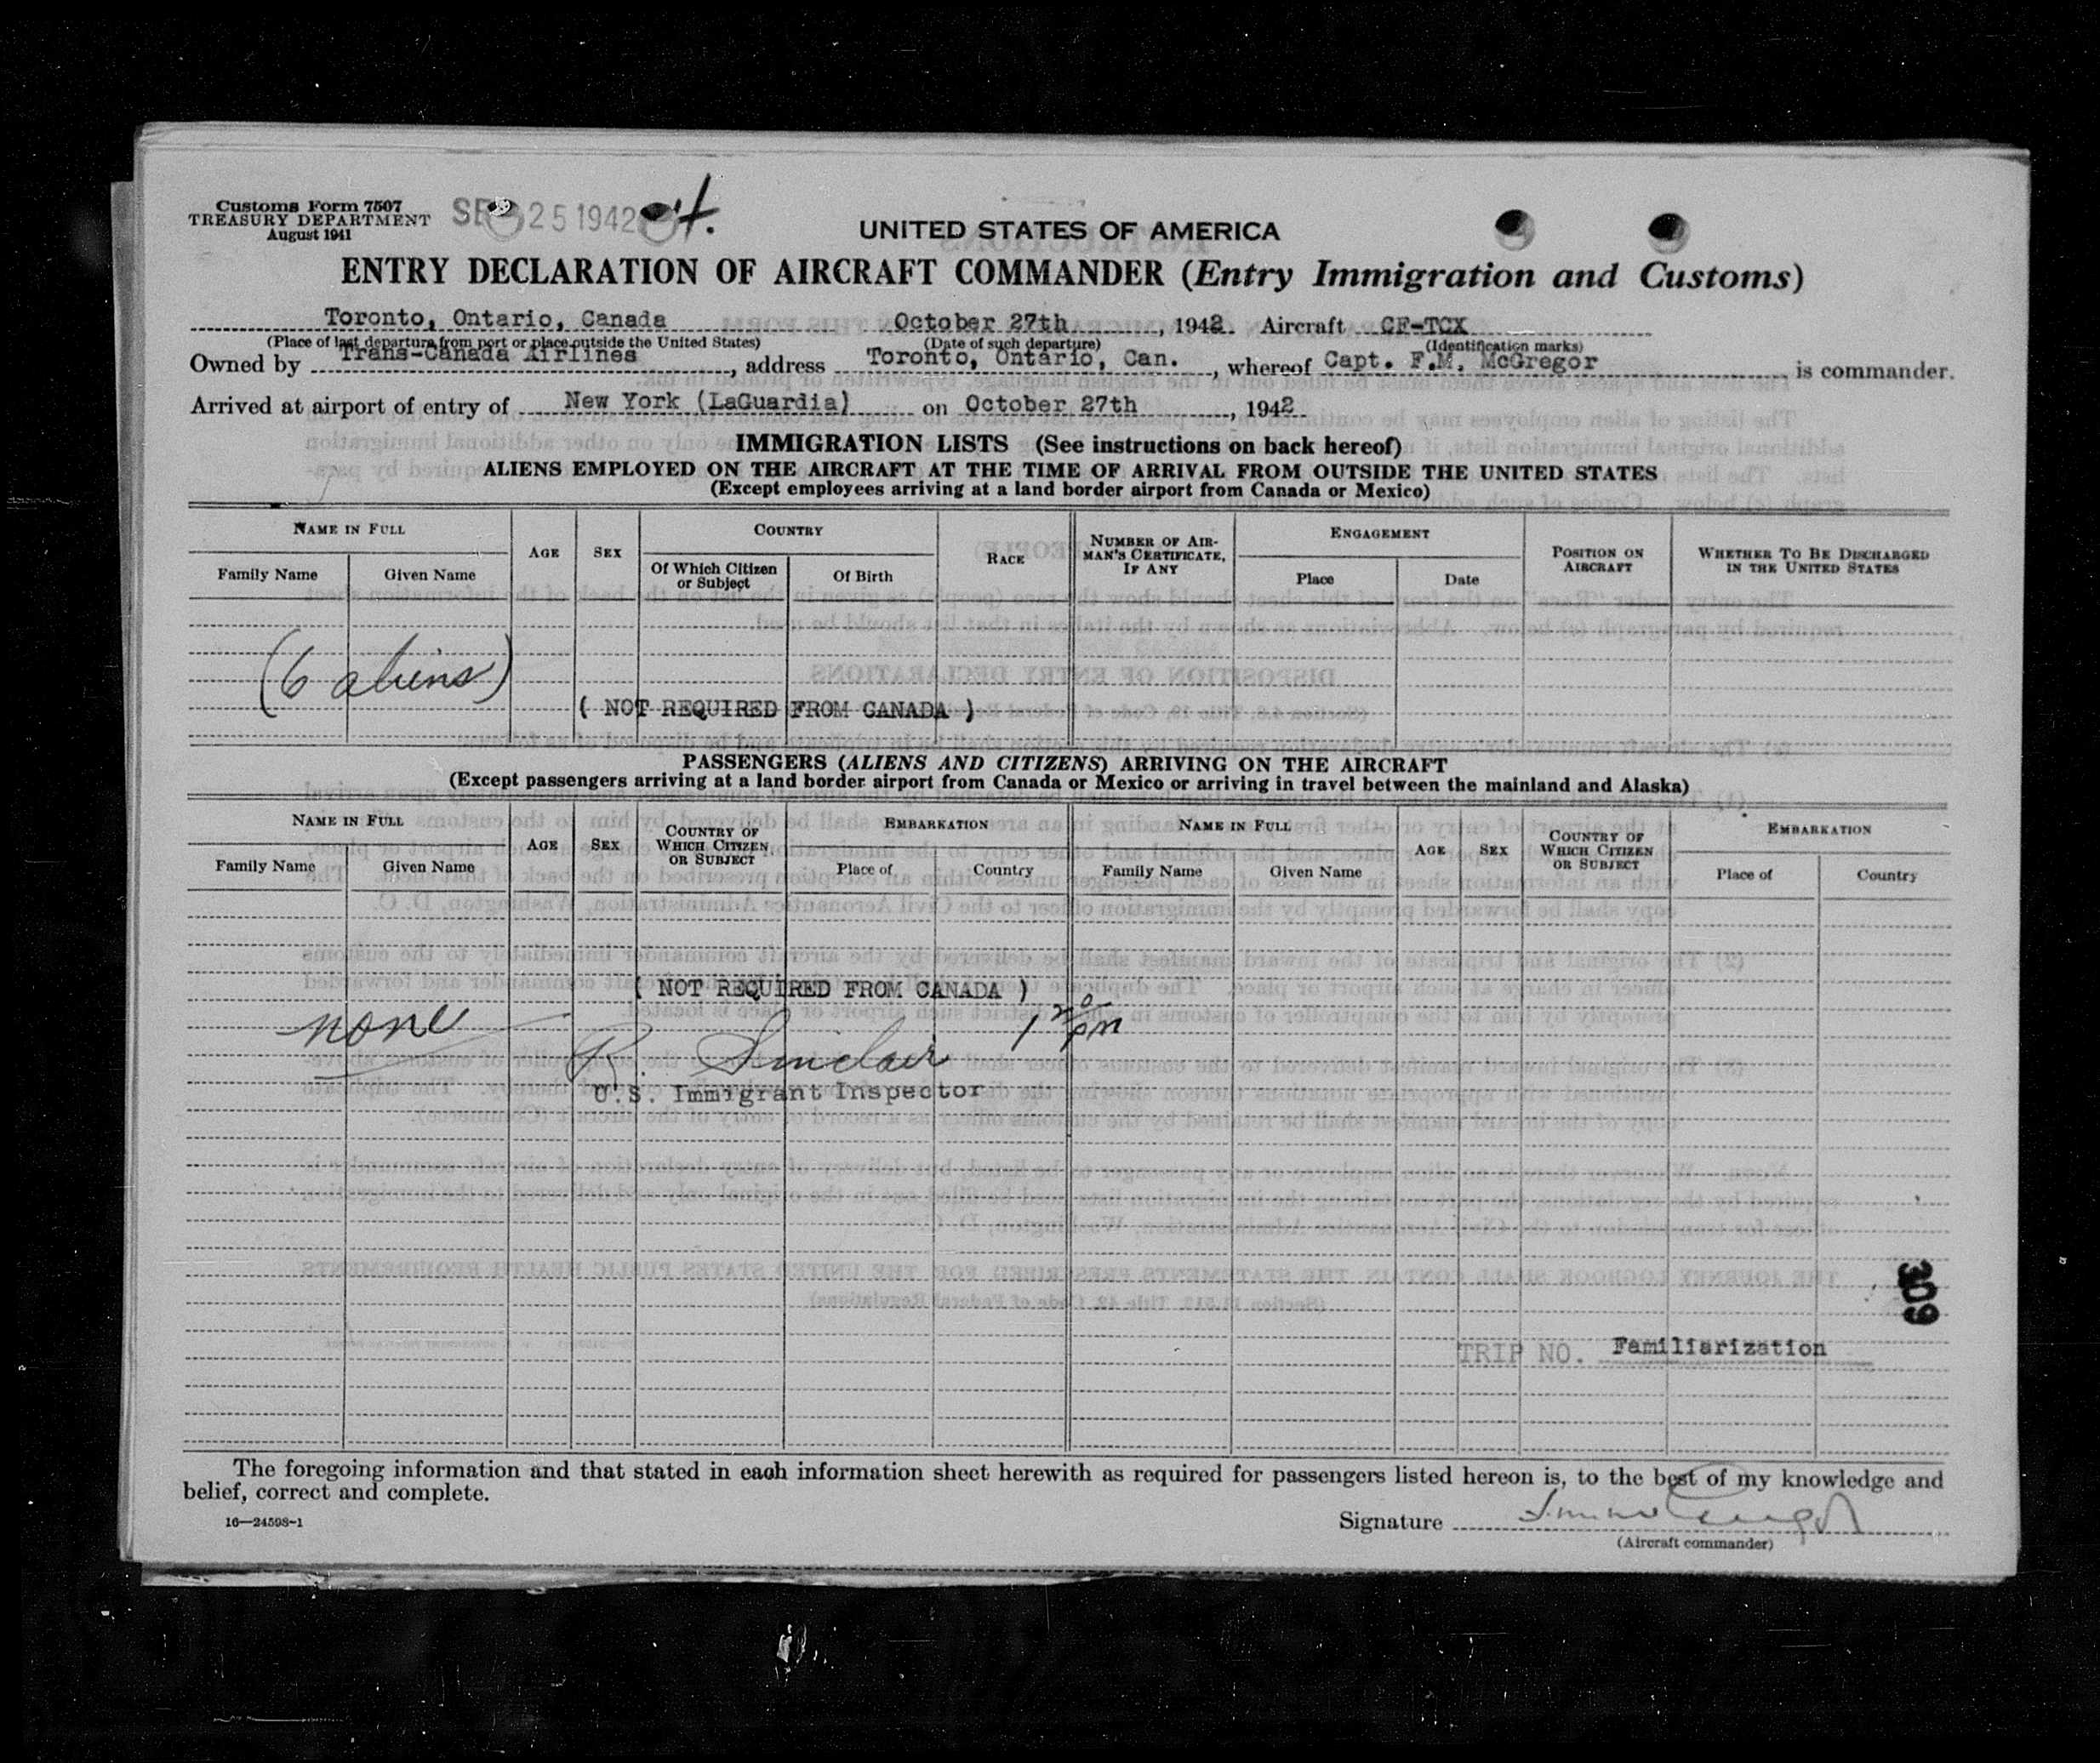 Customs Form 7507
TREASURY DEPARTMENT
August 1941
SEP 25 1942
UNITED STATES OF AMERICA
ENTRY DECLARATION OF AIRCRAFT COMMANDER (Entry Immigration and Customs)
Toronto, Ontario, Canada October 27th, 1942. Aircraft CF-TCX
(Place of last departure from port or place outside the United States) (Date of such departure) (Identification marks)
Owned by Trans-Canada Airlines, address Toronto, Ontario, Can., whereof Capt. F.M. McGregor is commander.
Arrived at airport of entry of New York (LaGuardia) on October 27th, 1942
IMMIGRATION LISTS (See instructions on back hereof)
ALIENS EMPLOYED ON THE AIRCRAFT AT THE TIME OF ARRIVAL FROM OUTSIDE THE UNITED STATES
(Except employees arriving at a land border airport from Canada or Mexico)
NAME IN FULL
Family Name Given Name
AGE
SEX
COUNTRY
Of Which Citizen or Subject
Of Birth
RACE
NUMBER OF AIR-
MAN'S CERTIFICATE,
IF ANY
ENGAGEMENT
Place Date
POSITION ON
AIRCRAFT
WHETHER TO BE DISCHARGED
IN THE UNITED STATES
(6 aliens)
( NOT REQUIRED FROM CANADA )
PASSENGERS (ALIENS AND CITIZENS) ARRIVING ON THE AIRCRAFT
(Except passengers arriving at a land border airport from Canada or Mexico or arriving in travel between the mainland and Alaska)
NAME IN FULL
Family Name Given Name
AGE
SEX
COUNTRY OF
WHICH CITIZEN
OR SUBJECT
EMBARKATION
Place of Country
NAME IN FULL
Family Name Given Name
AGE
SEX
COUNTRY OF
WHICH CITIZEN
OR SUBJECT
EMBARKATION
Place of Country
( NOT REQUIRED FROM CANADA )
none
R. Sinclair
U.S. Immigrant Inspector
309
TRIP NO. Familiarization
The foregoing information and that stated in each information sheet herewith as required for passengers listed hereon is, to the best of my knowledge and
belief, correct and complete.
16—24598-1
Signature
(Aircraft commander)